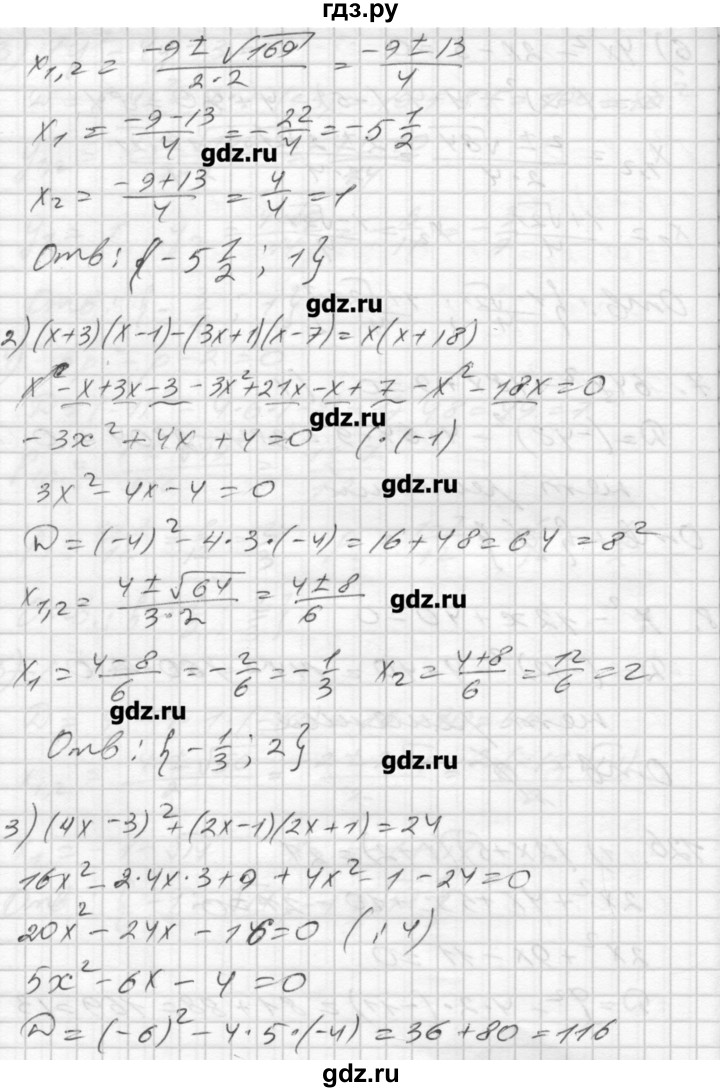 гдз.ру
x₁,₂ = (-9 ± √169)/(2·2) = (-9 ± 13)/4
x₁ = (-9-13)/4 = -22/4 = -5 1/2
gdz.ru
x₂ = (-9+13)/4 = 4/4 = 1
Отв: {-5 1/2; 1}
gdz.ru
2) (x+3)(x-1)-(3x+1)(x-7)=x(x+18)
x² - x + 3x - 3 - 3x² + 21x - x + 7 - x² - 18x = 0
gdz.ru
-3x² + 4x + 4 = 0 (·(-1)
3x² - 4x - 4 = 0
gdz.ru
D = (-4)² - 4·3·(-4) = 16 + 48 = 64 = 8²
x₁,₂ = (4 ± √64)/(3·2) = (4 ± 8)/6
gdz.ru
x₁ = (4-8)/6 = -2/6 = -1/3 x₂ = (4+8)/6 = 12/6 = 2
gdz.ru
Отв: {-1/3; 2}
gdz.ru
3) (4x-3)² + (2x-1)(2x+1) = 24
16x² - 2·4x·3 + 9 + 4x² - 1 - 24 = 0
20x² - 24x - 16 = 0 (:4)
5x² - 6x - 4 = 0
D = (-6)² - 4·5·(-4) = 36 + 80 = 116
gdz.ru